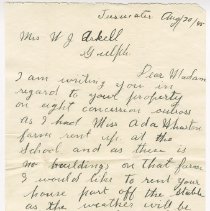 Aug 20/45
Mrs W J Arkell
Guelph.
Dear Madam
I am writing you in
regard to your property
on eight concession
as I had Miss Ada
farm rent up at the
School and as there is
no buildings on that farm
I would like to rent your
house part off the stable
as the weather will be